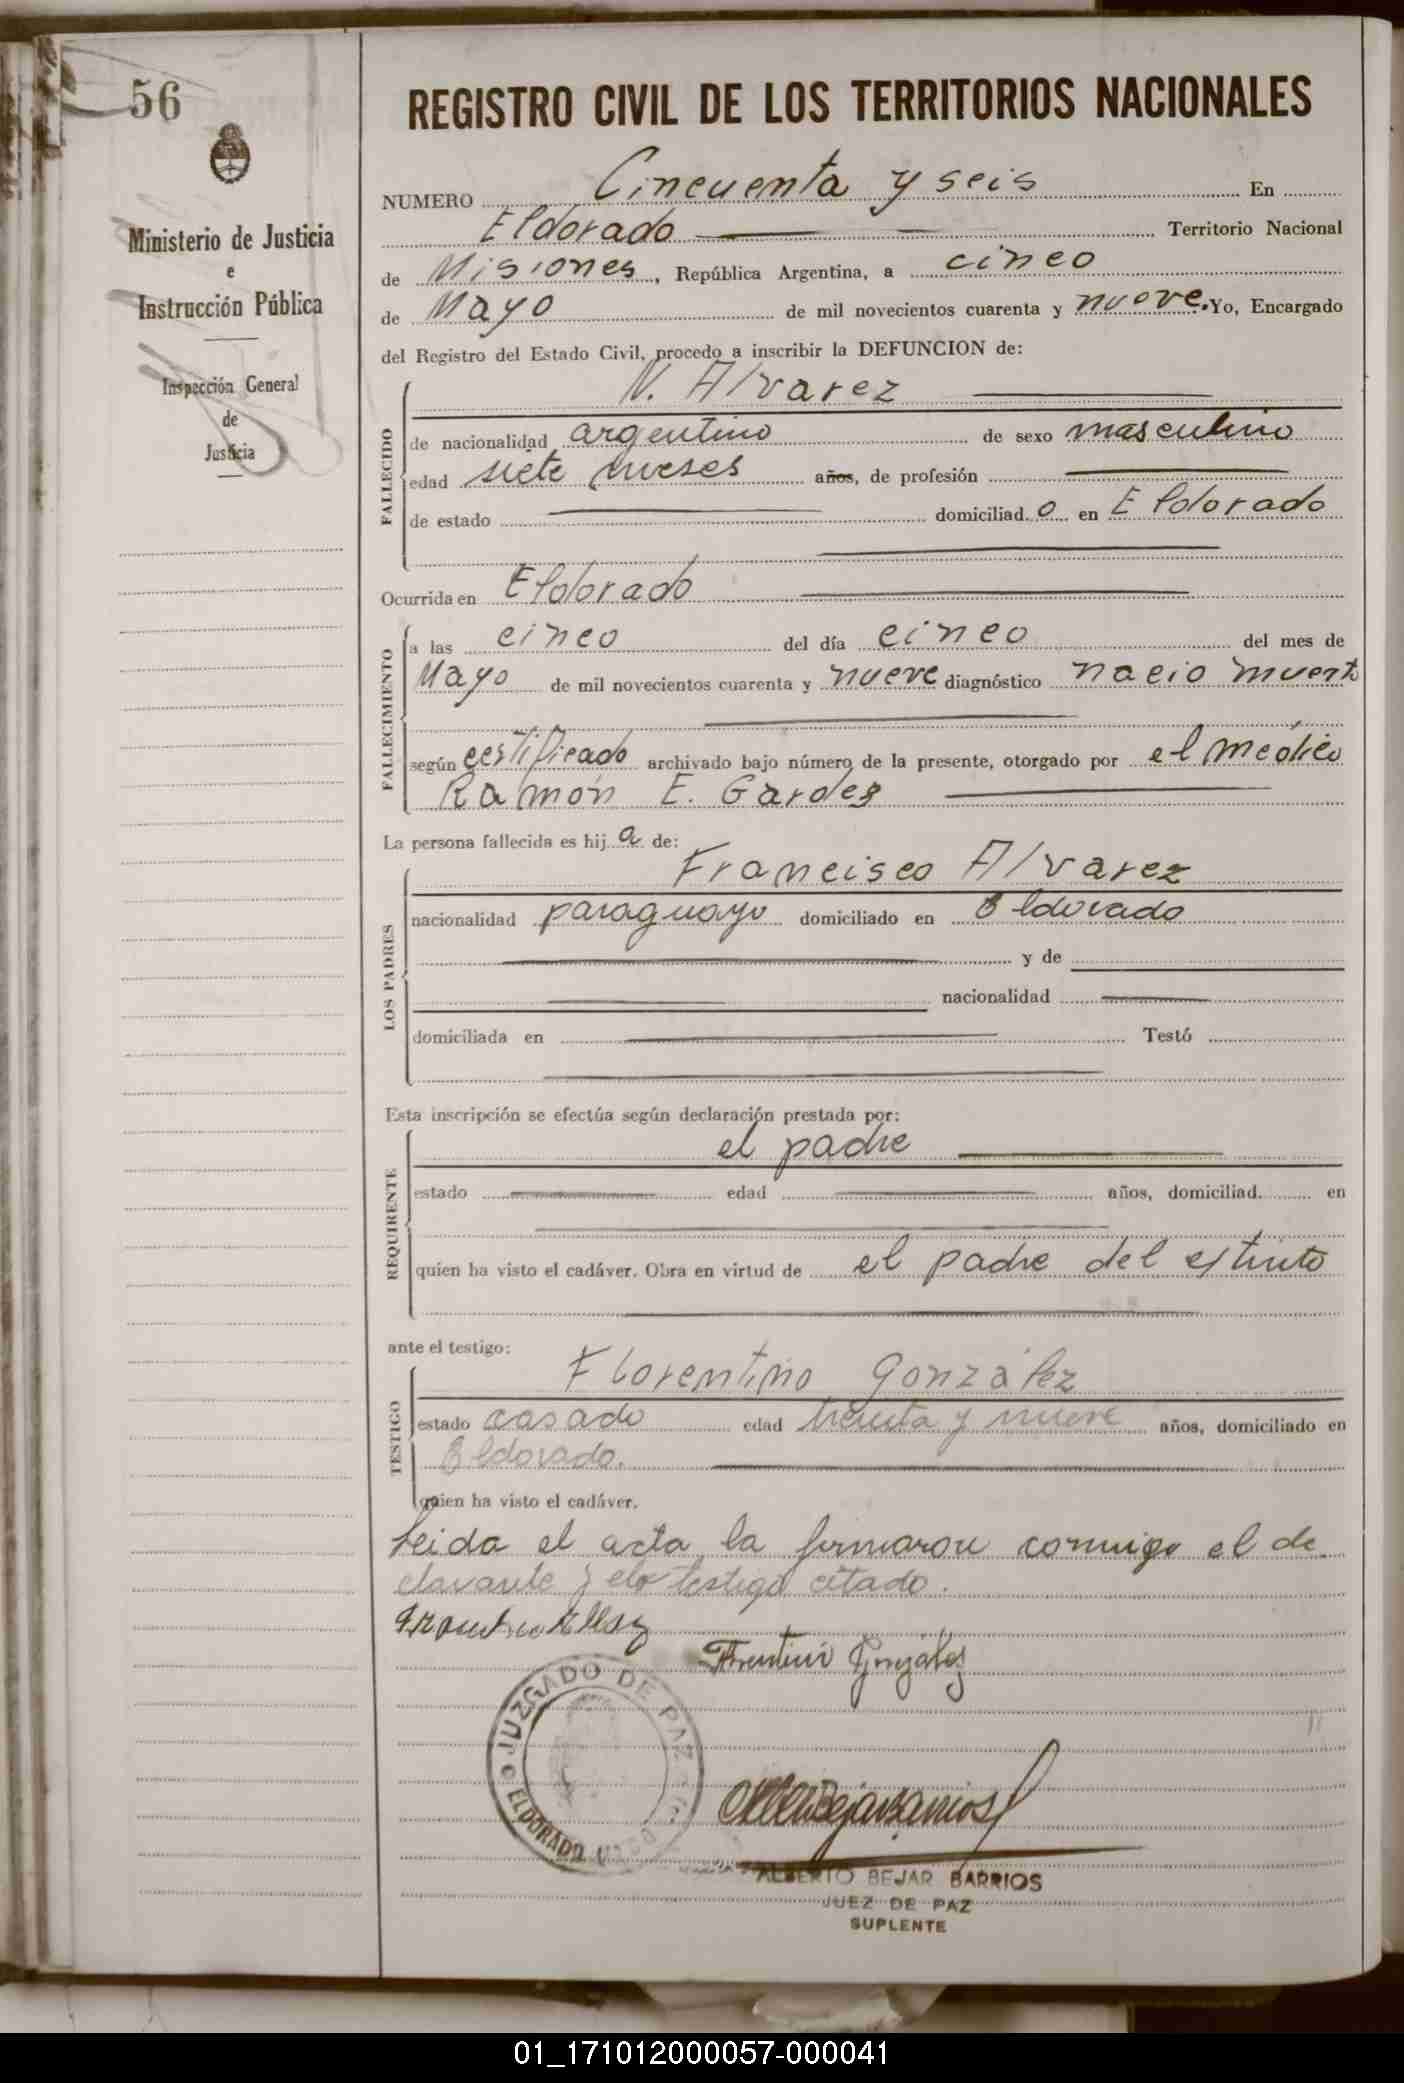 56
Ministerio de Justicia
e
Instrucción Pública
Inspección General
de
Justicia
REGISTRO CIVIL DE LOS TERRITORIOS NACIONALES
NUMERO Cincuenta y seis En
Eldorado Territorio Nacional
de Misiones, República Argentina, a cinco
de Mayo de mil novecientos cuarenta y nueve. Yo, Encargado
del Registro del Estado Civil, procedo a inscribir la DEFUNCION de:
N. Alvarez
FALLECIDO
de nacionalidad argentino de sexo masculino
edad siete meses años, de profesión
de estado domiciliad o en Eldorado
Ocurrida en Eldorado
FALLECIMIENTO
a las cinco del día cinco del mes de
Mayo de mil novecientos cuarenta y nueve diagnóstico nacio muerto
según certificado archivado bajo número de la presente, otorgado por el médico
Ramón E. Gardes
La persona fallecida es hij a de:
LOS PADRES
Francisco Alvarez
nacionalidad paraguayo domiciliado en Eldorado
y de
nacionalidad
domiciliada en Testó
Esta inscripción se efectúa según declaración prestada por:
REQUIRENTE
el padre
estado edad años, domiciliad en
quien ha visto el cadáver. Obra en virtud de el padre del estinto
ante el testigo:
TESTIGO
Florentino González
estado casado edad treinta y nueve años, domiciliado en
Eldorado.
quien ha visto el cadáver.
Leida el acta la firmaron conmigo el de
clarante y el testigo citado.
Florentino González
JUZGADO DE PAZ
ELDORADO
ALBERTO BEJAR BARRIOS
JUEZ DE PAZ
SUPLENTE
01_171012000057-000041